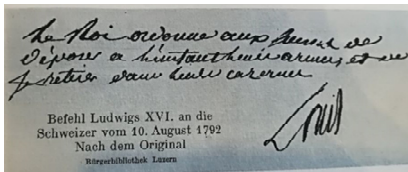 Le Roi ordonne aux Suisses de
déposer à l'instant leurs armes, et de
se retirer dans leurs casernes
Louis
Befehl Ludwigs XVI. an die
Schweizer vom 10. August 1792
Nach dem Original
Bürgerbibliothek Luzern